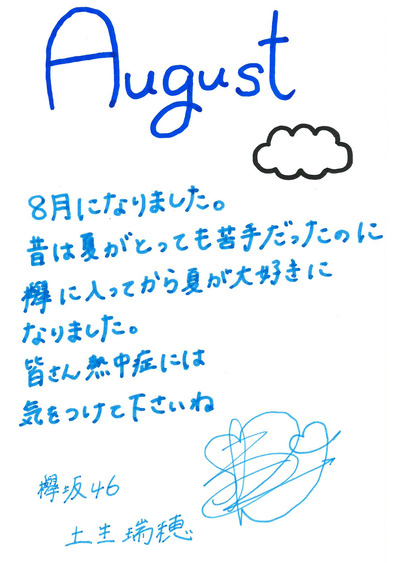 August
8月になりました。
昔は夏がとっても苦手だったのに
欅に入ってから夏が大好きに
なりました。
皆さん熱中症には
気をつけて下さいね
欅坂46
土生瑞穂